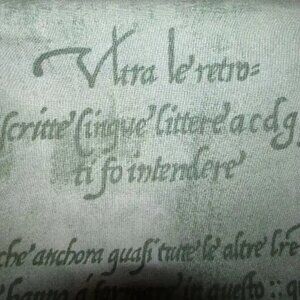 Ultra le retro=
scritte Cinque littere a c d g
ti fo intendere
che anchora quasi tutte le altre lre
hanno á formare in questo